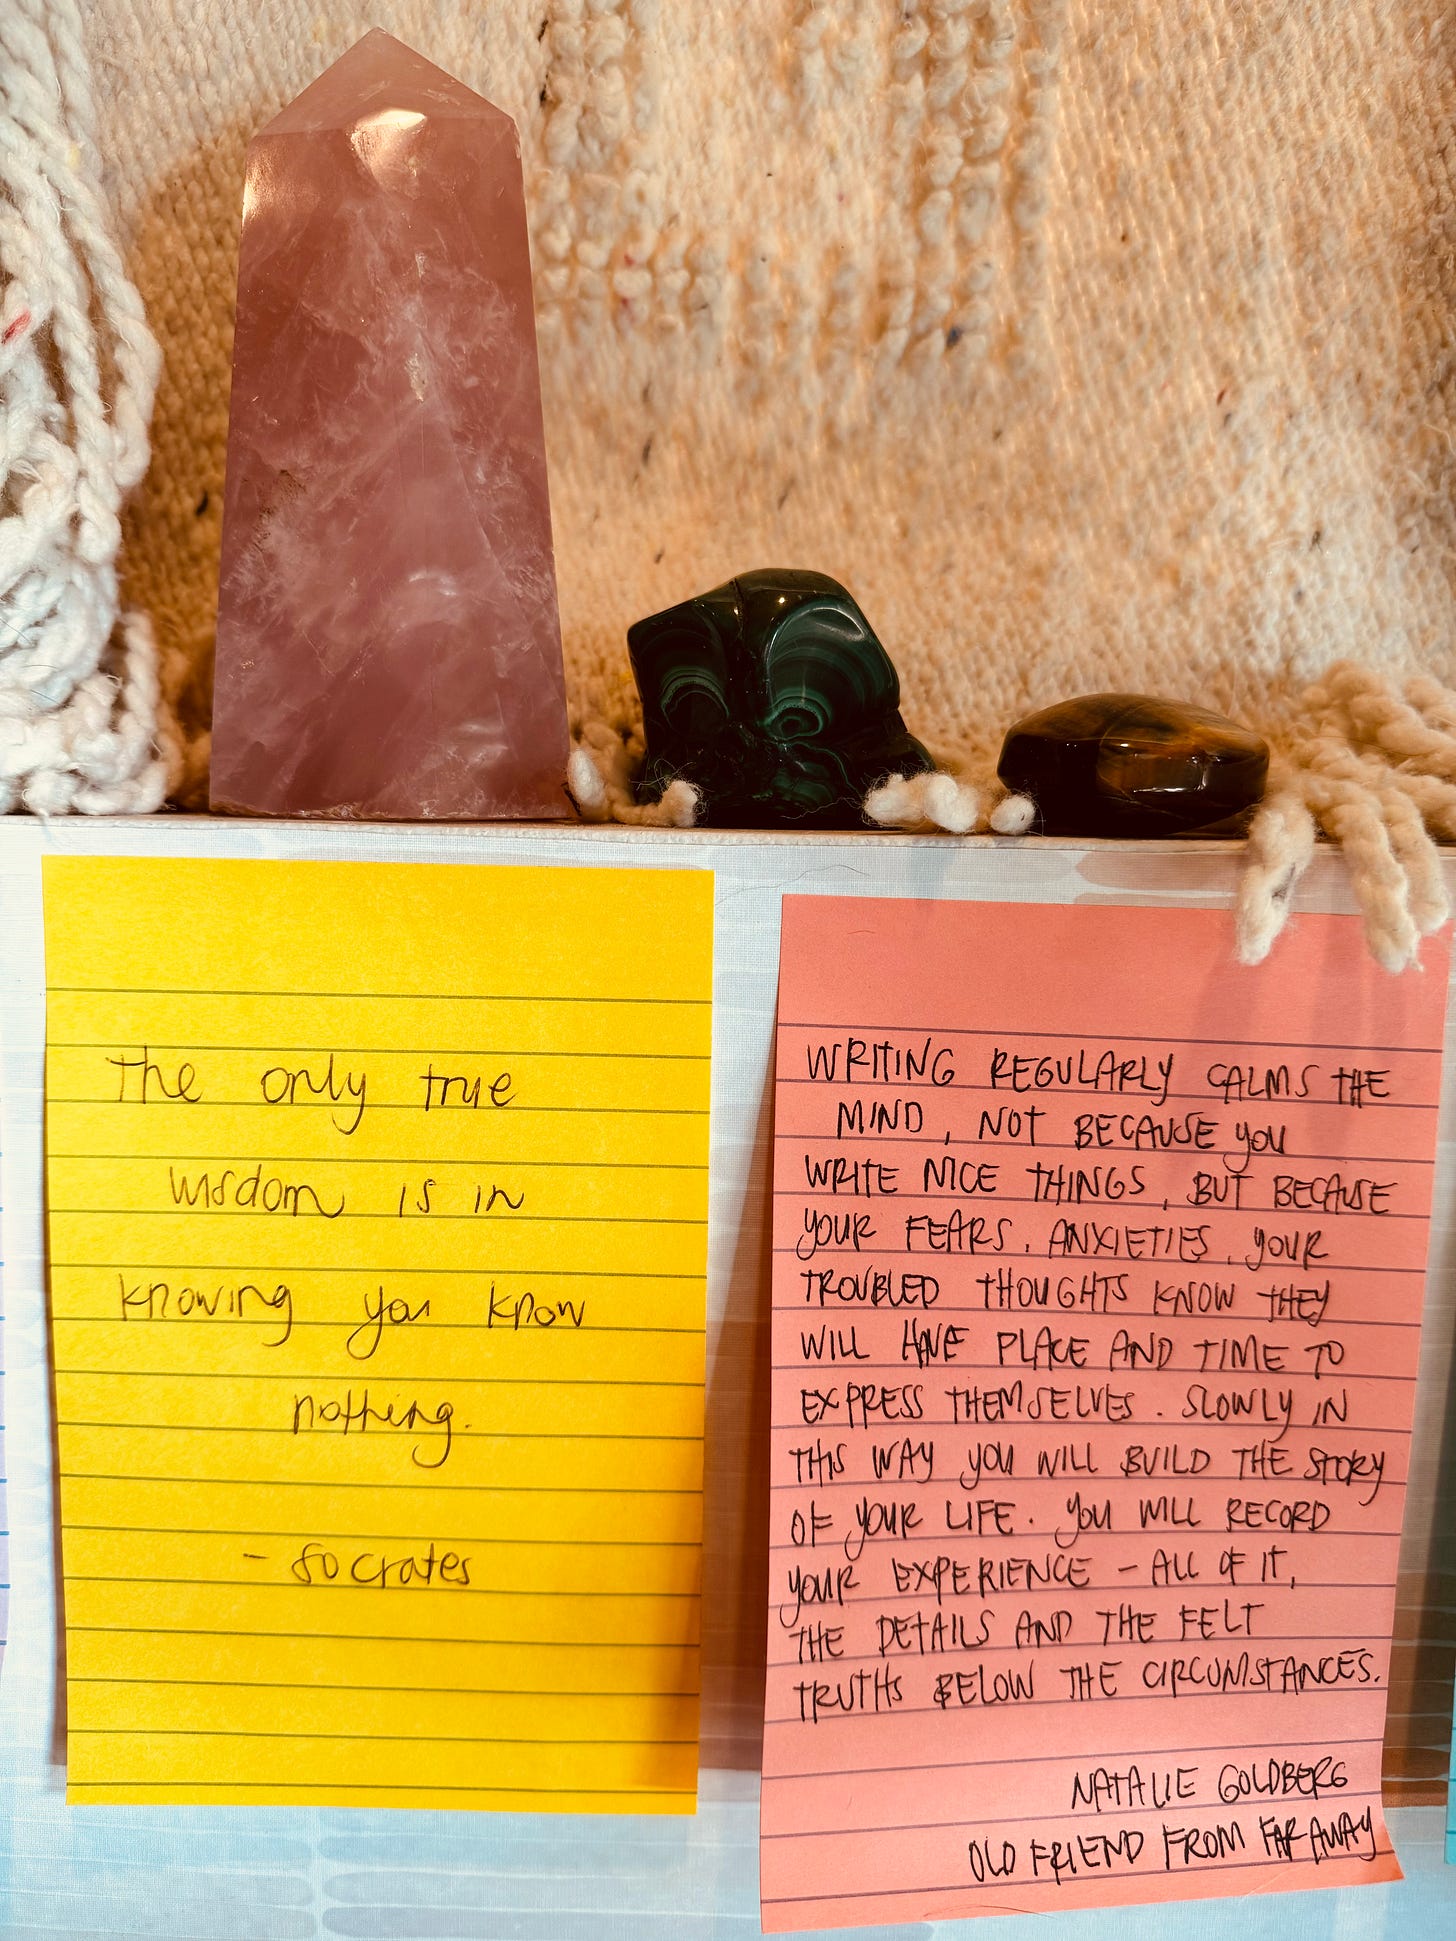 The only true
wisdom is in
knowing you know
nothing.
- Socrates
WRITING REGULARLY CALMS THE
MIND, NOT BECAUSE YOU
WRITE NICE THINGS, BUT BECAUSE
YOUR FEARS, ANXIETIES, YOUR
TROUBLED THOUGHTS KNOW THEY
WILL HAVE PLACE AND TIME TO
EXPRESS THEMSELVES. SLOWLY IN
THIS WAY YOU WILL BUILD THE STORY
OF YOUR LIFE. YOU WILL RECORD
YOUR EXPERIENCE - ALL OF IT,
THE DETAILS AND THE FELT
TRUTHS BELOW THE CIRCUMSTANCES.
NATALIE GOLDBERG
OLD FRIEND FROM FAR AWAY